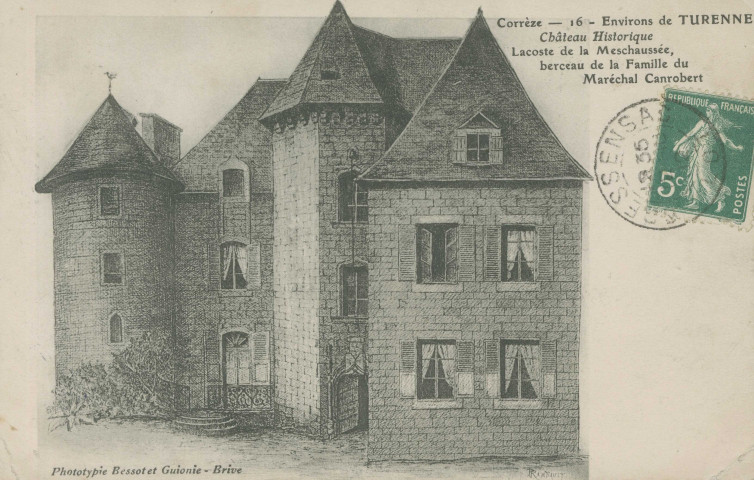 Corrèze — 16 - Environs de TURENNE
Château Historique
Lacoste de la Meschaussée,
berceau de la Famille du
Maréchal Canrobert
REPUBLIQUE FRANÇAISE
5c
POSTES
Phototypie Bessot et Guionie - Brive